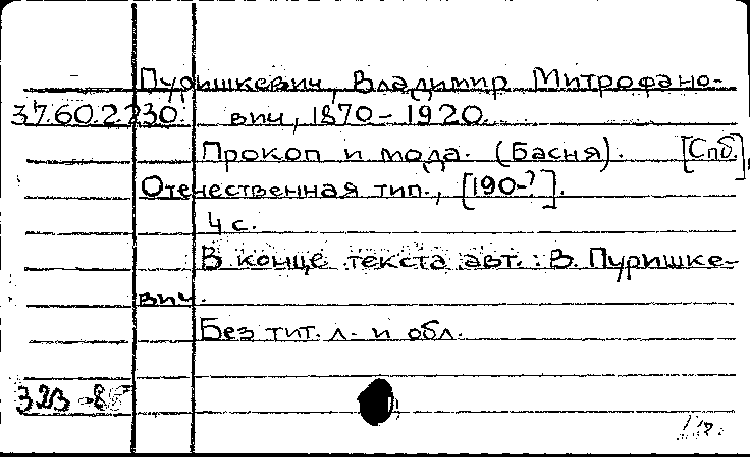 Пуришкевич, Владимир Митрофано-
37.60.2.230. вич, 1870-1920.
Прокоп и мода. (Басня). [Спб.],
Отечественная тип., [190-?].
4 с.
В конце текста авт.: В. Пуришке-
вич.
Без тит. л. и обл.